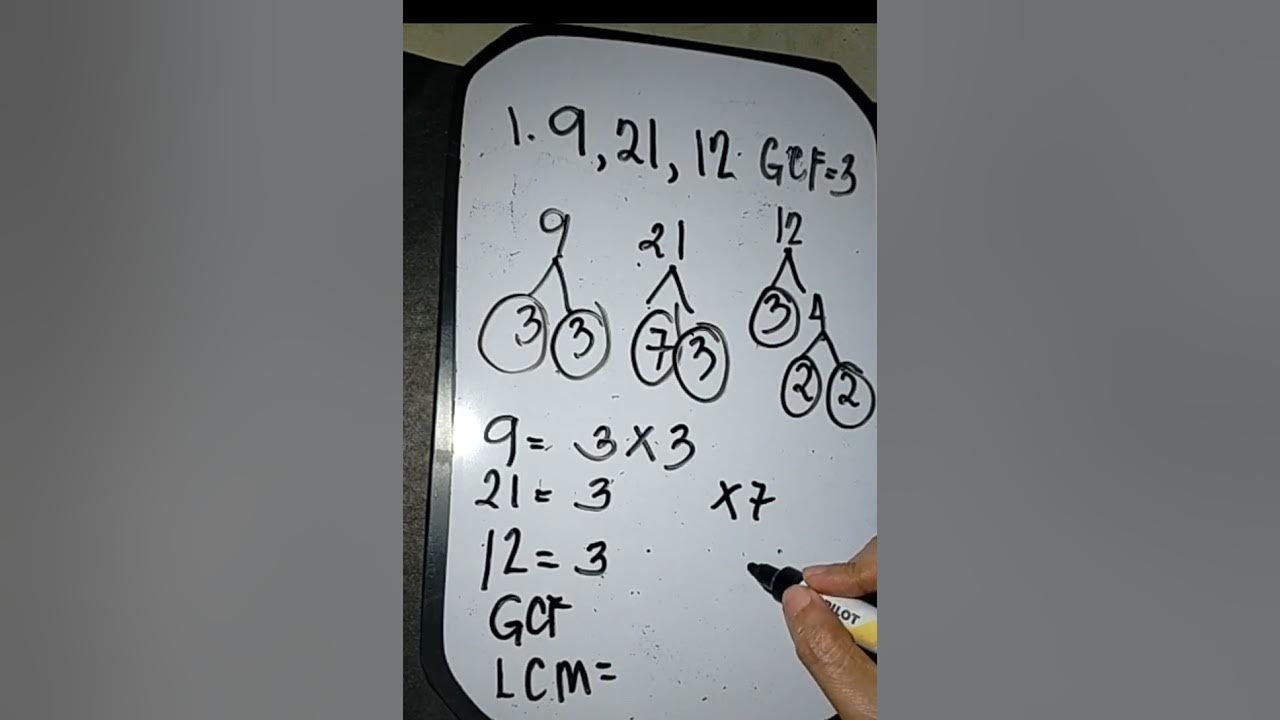 1. 9, 21, 12 GCF=3
9 21 12
3 3 7 3 3 4
2 2
9= 3 x 3
21= 3 x 7
12= 3
GCF
LCM=